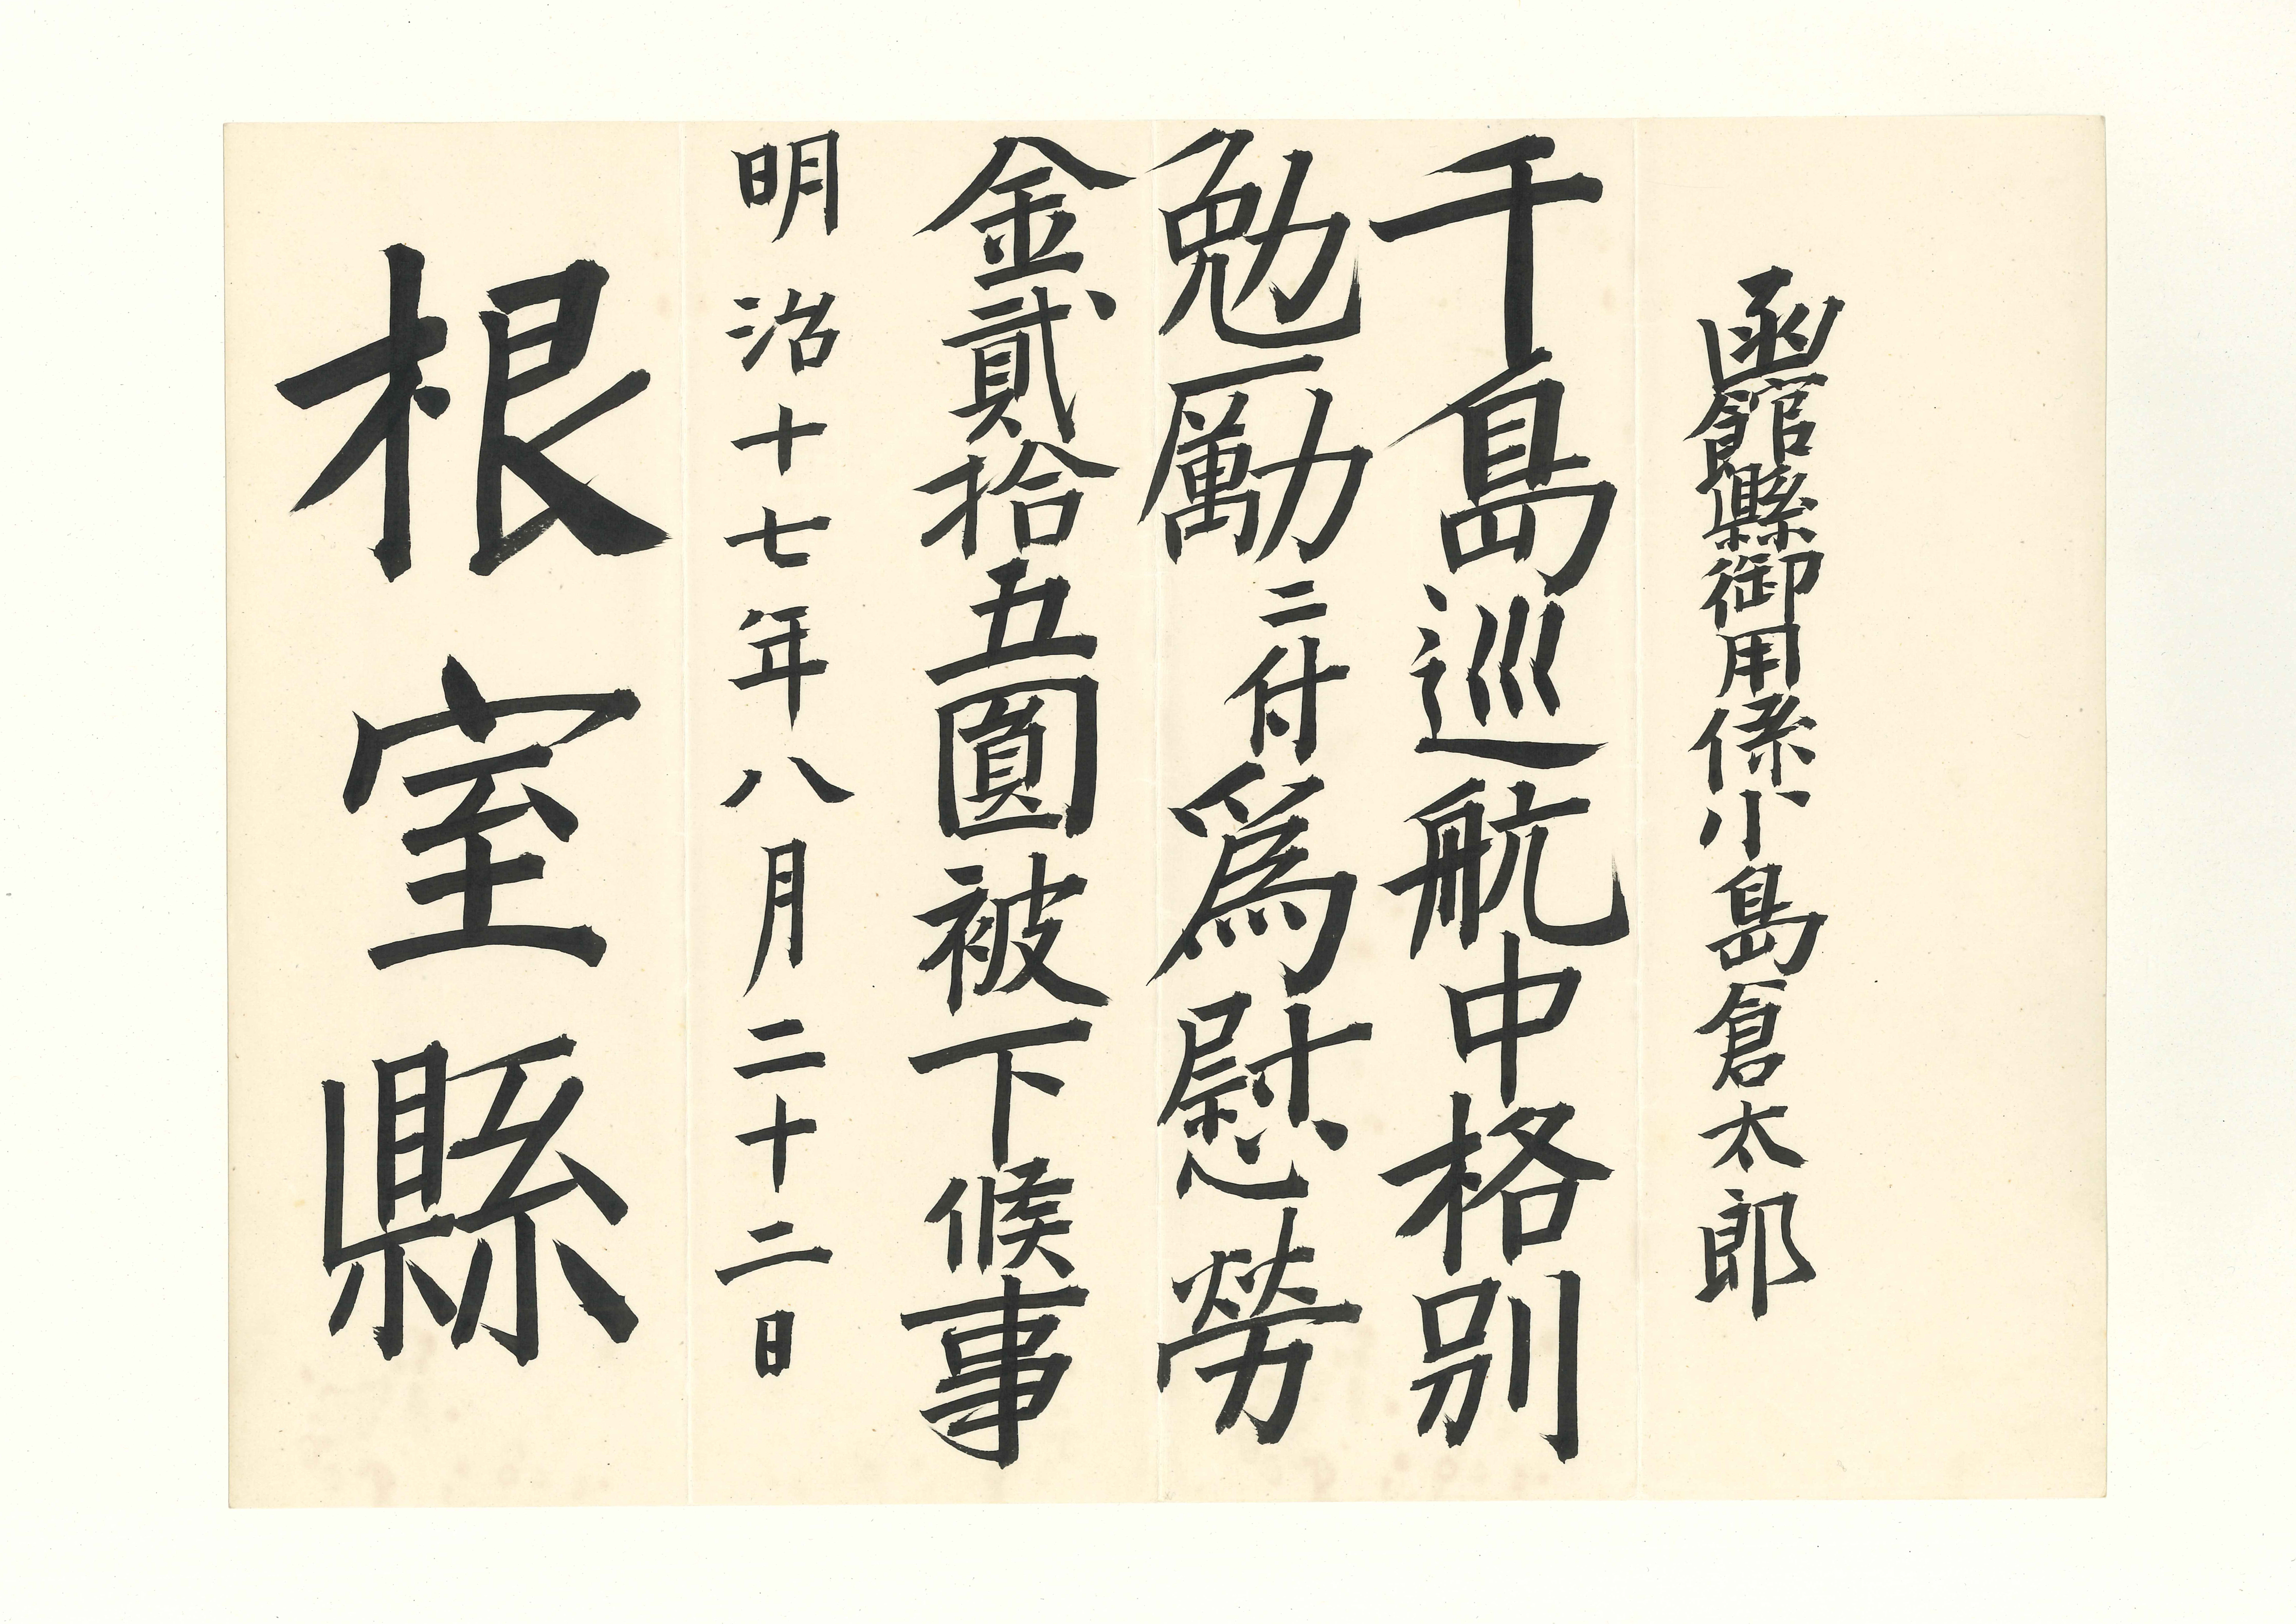 函館縣御用係小島倉太郎
千島巡航中格別
勉勵ニ付爲慰勞
金貳拾五圓被下候事
明治十七年八月二十二日
根室縣